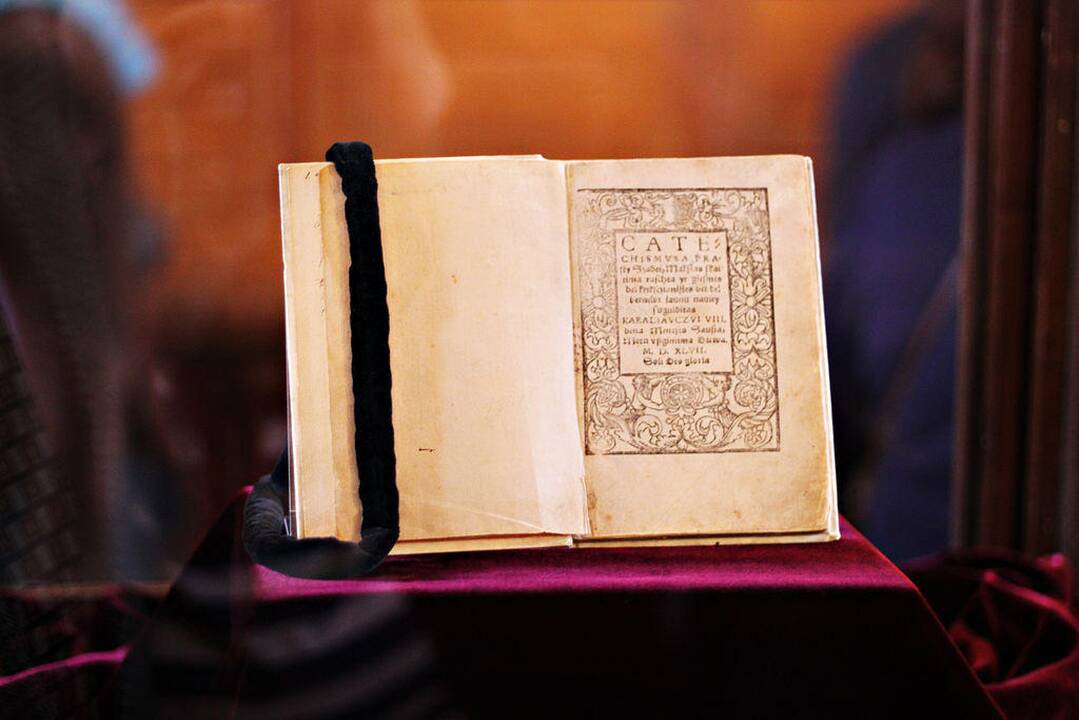 CATE⸗
CHISMVSA PRA-
sty Szadei, Makslas skai
tima raschta yr giesmes
del kriksczianistes bei del
berneliu iaunu nauiey
sugulditas
KARALIAVCZVI VIII.
dena Meneses Sausia,
Metu vßgimima Diewa.
M. D. XLVII.
Soli Deo gloria